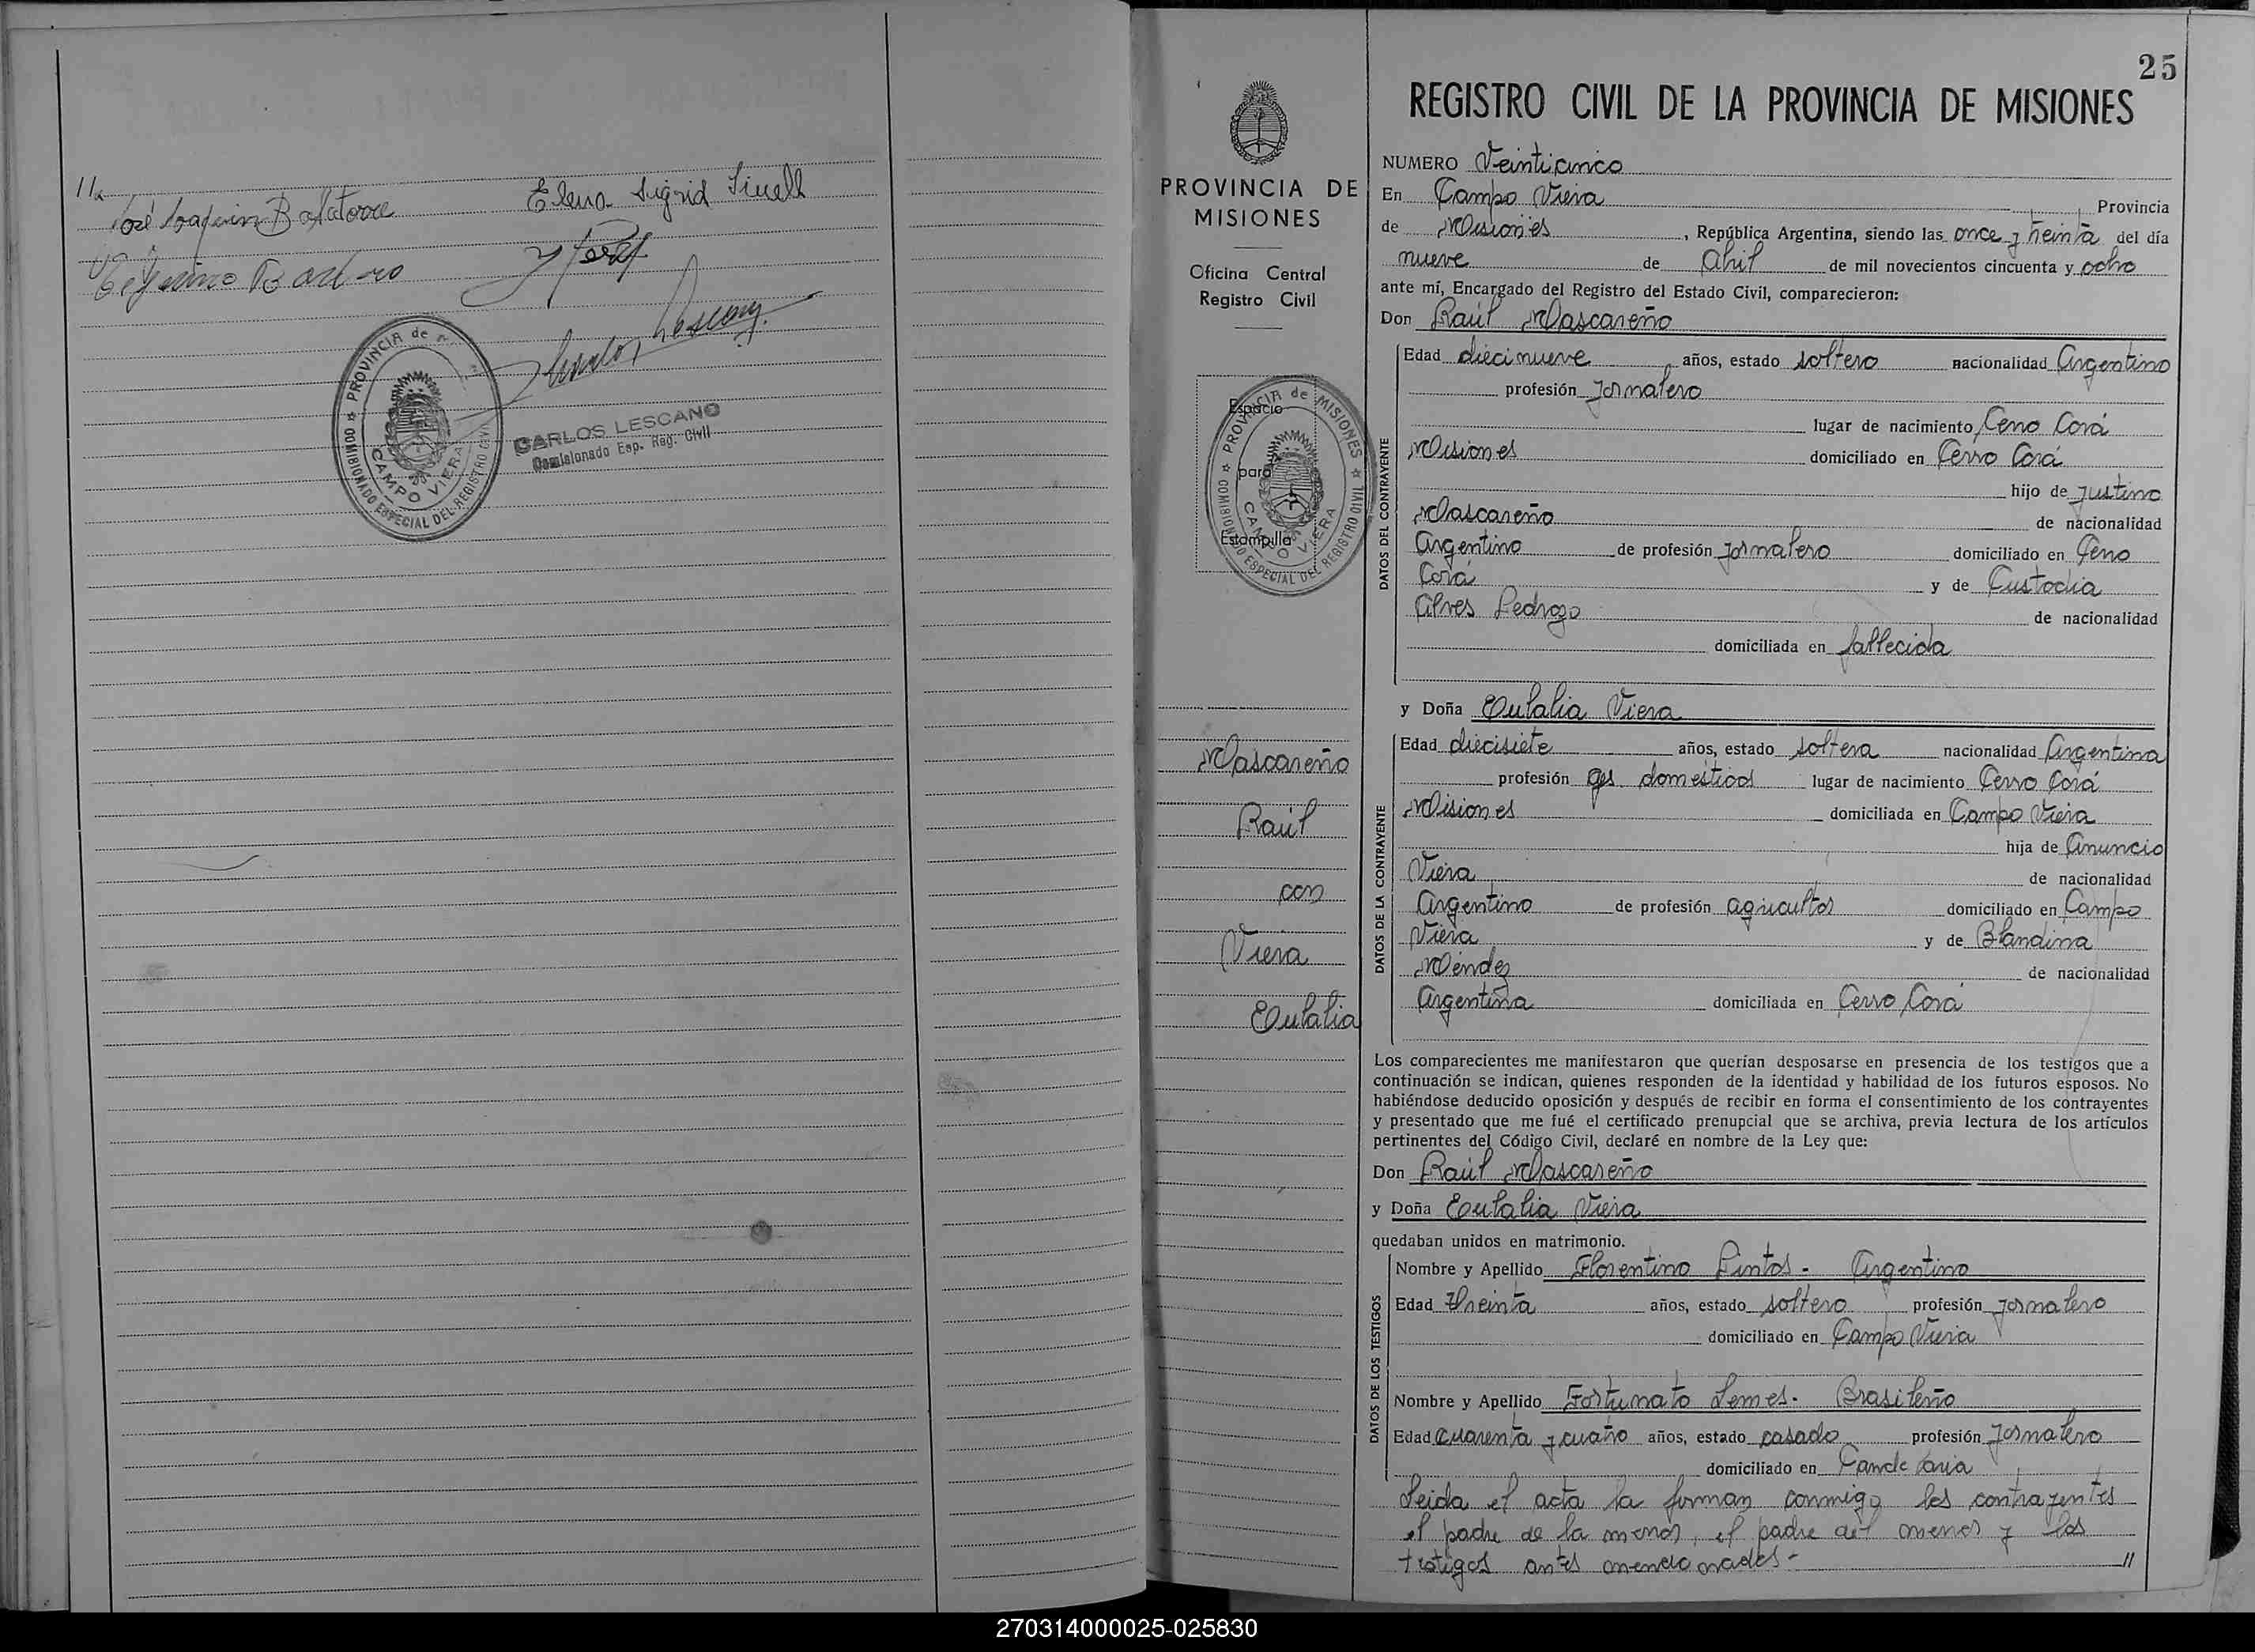 11a
José Joaquin Balatorre
Elena Sigrid
PROVINCIA de
COMISIONADO ESPECIAL DEL REGISTRO CIVIL
CAMPO VIERA
CARLOS LESCANO
Comisionado Esp. Reg. Civil
PROVINCIA DE
MISIONES
Oficina Central
Registro Civil
Espacio
para
Estampilla
PROVINCIA de MISIONES
COMISIONADO ESPECIAL DEL REGISTRO CIVIL
CAMPO VIERA
Mascareño
Raúl
con
Viera
Eulalia
25
REGISTRO CIVIL DE LA PROVINCIA DE MISIONES
NUMERO Veinticinco
En Campo Viera Provincia
de Misiones, República Argentina, siendo las once y treinta del día
nueve de Abril de mil novecientos cincuenta y ocho
ante mí, Encargado del Registro del Estado Civil, comparecieron:
Don Raúl Mascareño
DATOS DEL CONTRAYENTE
Edad diecinueve años, estado soltero nacionalidad Argentino
profesión Jornalero
lugar de nacimiento Cerro Corá
Misiones domiciliado en Cerro Corá
hijo de Justino
Mascareño de nacionalidad
Argentino de profesión Jornalero domiciliado en Cerro
Corá y de Custodia
Alves Pedrozo de nacionalidad
domiciliada en fallecida
y Doña Eulalia Viera
DATOS DE LA CONTRAYENTE
Edad diecisiete años, estado soltera nacionalidad Argentina
profesión qs. domésticos lugar de nacimiento Cerro Corá
Misiones domiciliada en Campo Viera
hija de Anuncio
Viera de nacionalidad
Argentino de profesión agricultor domiciliado en Campo
Viera y de Blandina
Méndez de nacionalidad
Argentina domiciliada en Cerro Corá
Los comparecientes me manifestaron que querían desposarse en presencia de los testigos que a
continuación se indican, quienes responden de la identidad y habilidad de los futuros esposos. No
habiéndose deducido oposición y después de recibir en forma el consentimiento de los contrayentes
y presentado que me fué el certificado prenupcial que se archiva, previa lectura de los artículos
pertinentes del Código Civil, declaré en nombre de la Ley que:
Don Raúl Mascareño
y Doña Eulalia Viera
quedaban unidos en matrimonio.
DATOS DE LOS TESTIGOS
Nombre y Apellido Florentino Pintos - Argentino
Edad Treinta años, estado soltero profesión Jornalero
domiciliado en Campo Viera
Nombre y Apellido Fortunato Lemes - Brasileño
Edad cuarenta y cuatro años, estado casado profesión Jornalero
domiciliado en Candelaria
Leida el acta la firman conmigo los contrayentes
el padre de la menor, el padre del menor y los
testigos antes mencionados - //
270314000025-025830